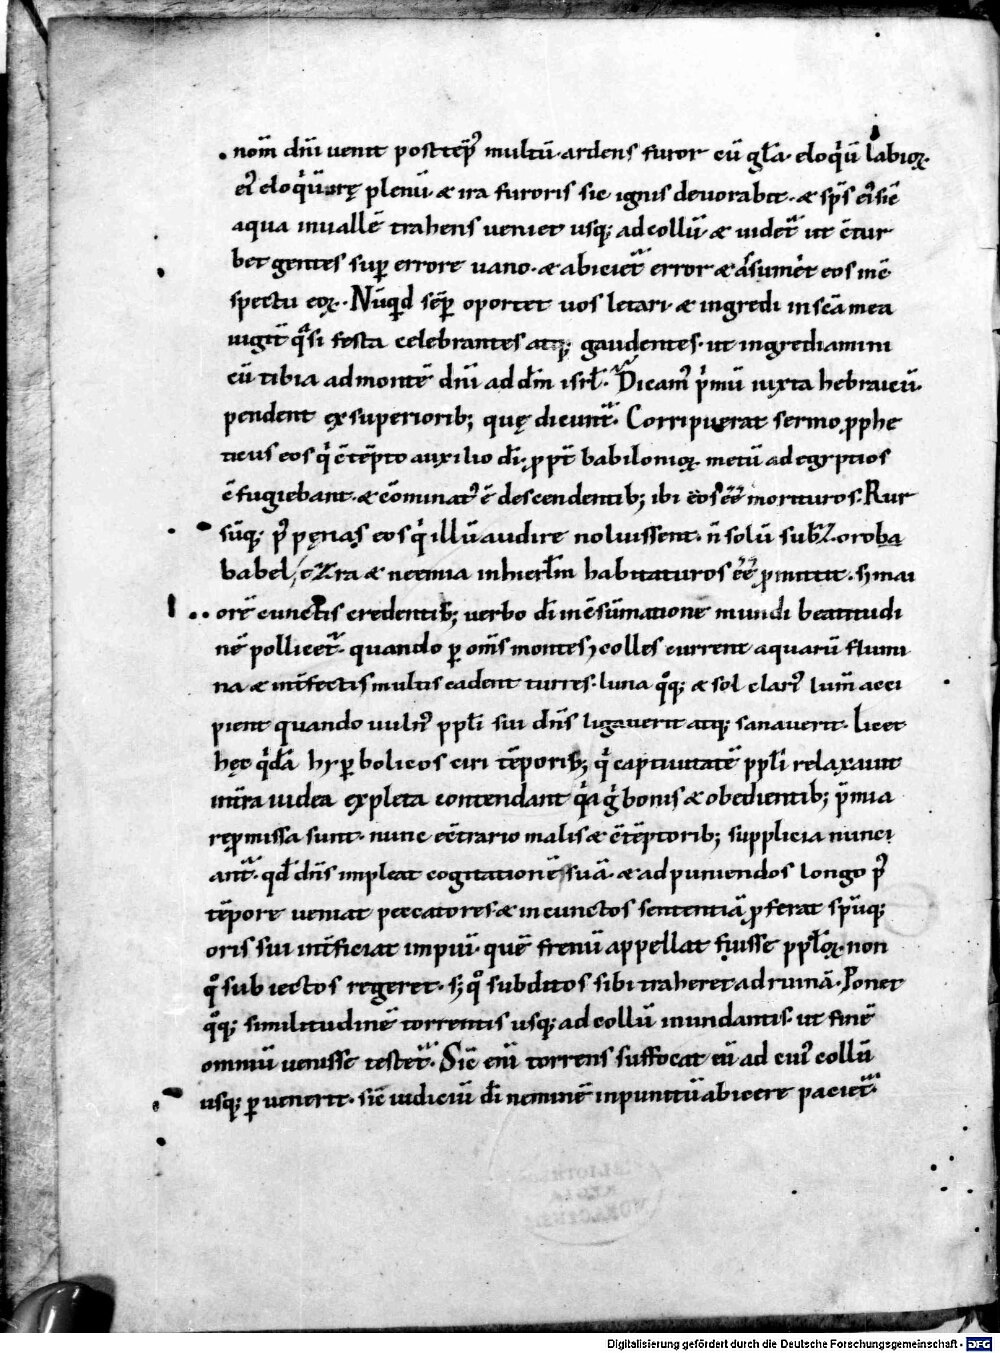 nom̄ dñi uenit post tēp᷒ multū· ardens furor cū gła· eloq̇ū labioꝝ·
ei᷒ eloq̇ū orę plenū & ira furoris sic ignis deuorabit· & sp̄s ei᷒ sic̄
aqua inuallē trahens ueniet usq; ad collū & uidet᷑ ut c̄tur
bet gentes sup̱ errore uano· & abiciet᷑ error & assumet eos inc̄
spectu eoꝝ· Nūq̇d sēp̱ oportet uos letari· & ingredi insc̄a mea
uigit q̄si festa celebrantes atq; gaudentes· ut ingrediamini
cū tibia admontē dñi ad dm̄ isrł· Dicam᷒ p̍mū iuxta hebraicū·
pendent exsuperiorib; quę dicunt᷑· Corripuerat sermo ꝓphe
ticus eos q̇ c̄tēpto auxilio dī· ꝓpt̄ babilonioꝝ metū ad egyptios
c̄fugiebant· & cōminat᷒ ē descendentib; ibi eos ēē morituros· Rur
sūq; p᷒ pęnas eos q̇ illū audire noluissent· n̄ solū sub Zoroba
babel / eZra & neemia inhierłm habitaturos ēē ꝓmittit· sꝫ mai
orē cunctis credentib; uerbo dī inc̄sūmatione mundi beatitudi
nē pollicet᷑· quando ꝑ om̄s montes ⁊ colles current aquarū flumi
na & int̄fectis multis cadent turres· luna q̊q; & sol clari᷒ lum̄ acci
pient quando uuln᷒ ppłi sui dñs ligauerit atq; sanauerit· Licet
hęc q̇dā hyꝑbolicos ciri tēporib; q̇ captiuitatē ppłi relaxauit
int̄ra iudea expleta contendant q̇a g̊ bonis & obedientib; p̄mia
reꝓmissa sunt· nunc ec̄trario malis & c̄tēptorib; supplicia nunci
ant᷑· qđ dñs impleat cogitationē suā· & ad puniendos longo p᷒
tēpore ueniat peccatores & in cunctos sententiā ꝓferat sp̄uq;
oris sui int̄ficiat impiū· quē frenū appellat fuisse ppłoꝝ· non
q̊ subiectos regeret· sꝫ q̊ subditos sibi traheret ad ruinā· Ponet
q̊q; similitudinē torrentis usq; ad collū inundantis· ut finē
omniū uenisse testet᷑· Sic̄ eni torrens suffocat eū ad cui᷒ collū
usq; ꝑuenerit· sic̄ iudiciū dī neminē inpunitū abicere paciet᷑·
BIBLIOTHECA
REGIA
MONACENSIS
Digitalisierung gefördert durch die Deutsche Forschungsgemeinschaft - DFG